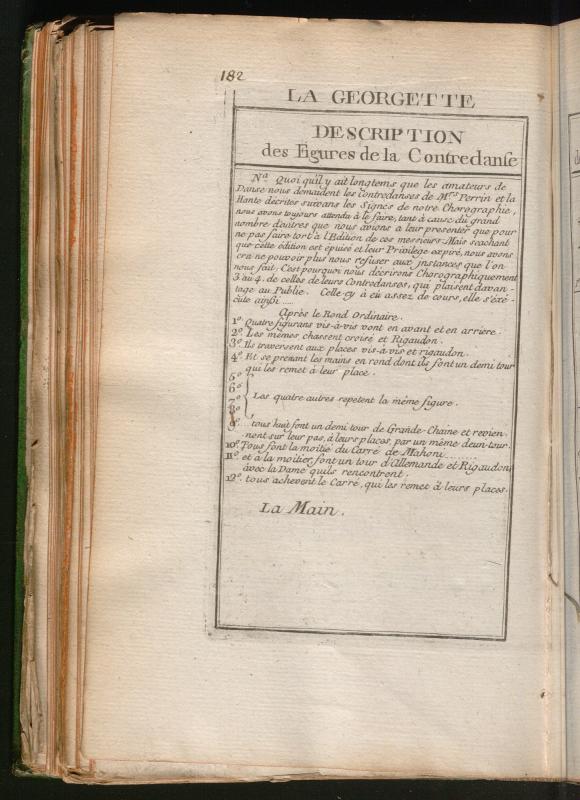 182
LA GEORGETTE
DESCRIPTION
des Figures de la Contredanſe
Na. Quoi qu'il y ait longtems que les amateurs de
Danse nous demandent les Contredanses de Mrs. Perrin et la
Hante décrites suivans les Signes de notre Chorographie,
nous avons toujours attendu à le faire, tant à cause du grand
nombre d'autres que nous avions a leur presenter que pour
ne pas faire tort à l'Edition de ces messieurs. Mais scachant
que cette édition est épuisé et leur Privilege expiré, nous avons
cru ne pouvoir plus nous refuser aux jnstances que l'on
nous fait; C'est pourquoi nous décrirons Chorographiquement
3 au 4. de celles de leurs Contredanses, qui plaisent davan-
tage au Publie. Celle-cy à eü assez de cours, elle s'éxé-
cute ainsi .....
Après le Rond Ordinaire.
1º. Quatre figurans vis-à-vis vont en avant et en arriere.
2º. Les mêmes chassent croisé et Rigaudon.
3º. Ils traversent aux places vis-à-vis et rigaudon.
4º. Et se prenant les mains en rond dont ils font un demi tour
qui les remet à leur place.
5º
6º
7º Les quatre autres repetent la même figure.
8º
9º. tous huit font un demi tour de Grande-Chaine et revien-
nent sur leur pas, à leurs places, par un même demi-tour.
10º. Tous font la moitié du Carré de Mahoni.........
11º et a la moitier, font un tour d'Allemande et Rigaudon,
avec la Dame quils rencontrent.
12º. tous achevent le Carré, qui les remet à leurs places.
La Main.